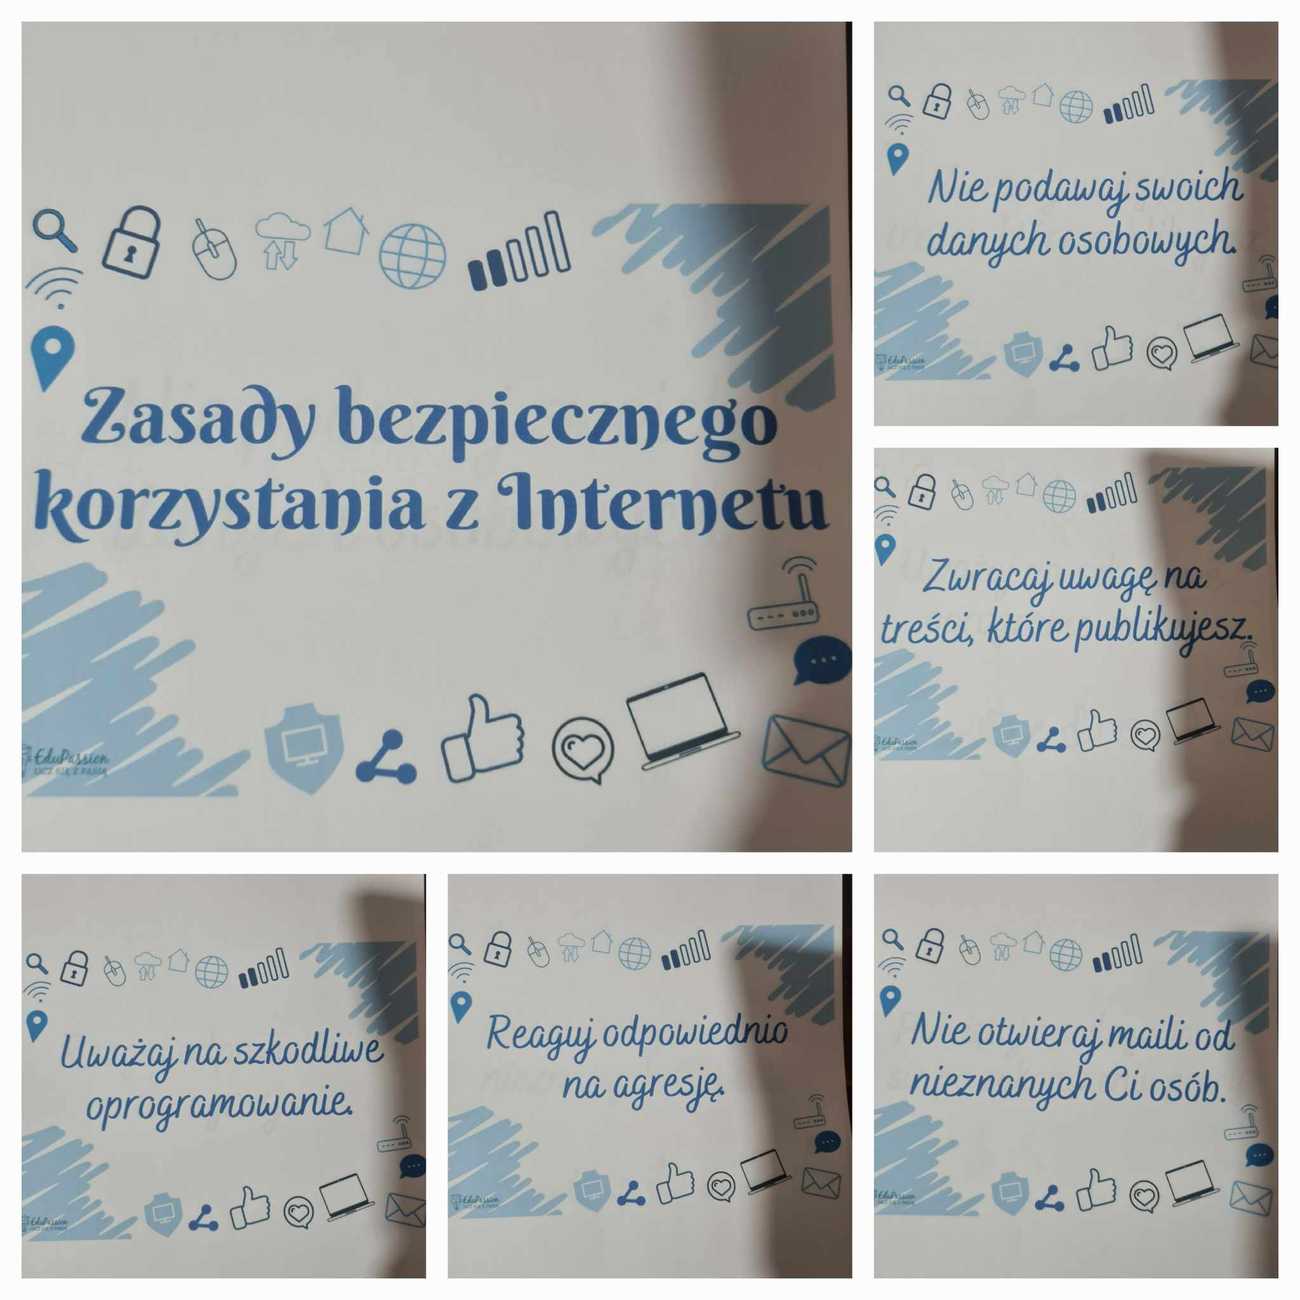 Zasady bezpiecznego
korzystania z Internetu
EduPassion
UCZ SIĘ Z PASJĄ
Nie podawaj swoich
danych osobowych.
EduPassion
Zwracaj uwagę na
treści, które publikujesz.
EduPassion
Uważaj na szkodliwe
oprogramowanie.
EduPassion
Reaguj odpowiednio
na agresję.
EduPassion
Nie otwieraj maili od
nieznanych Ci osób.
EduPassion